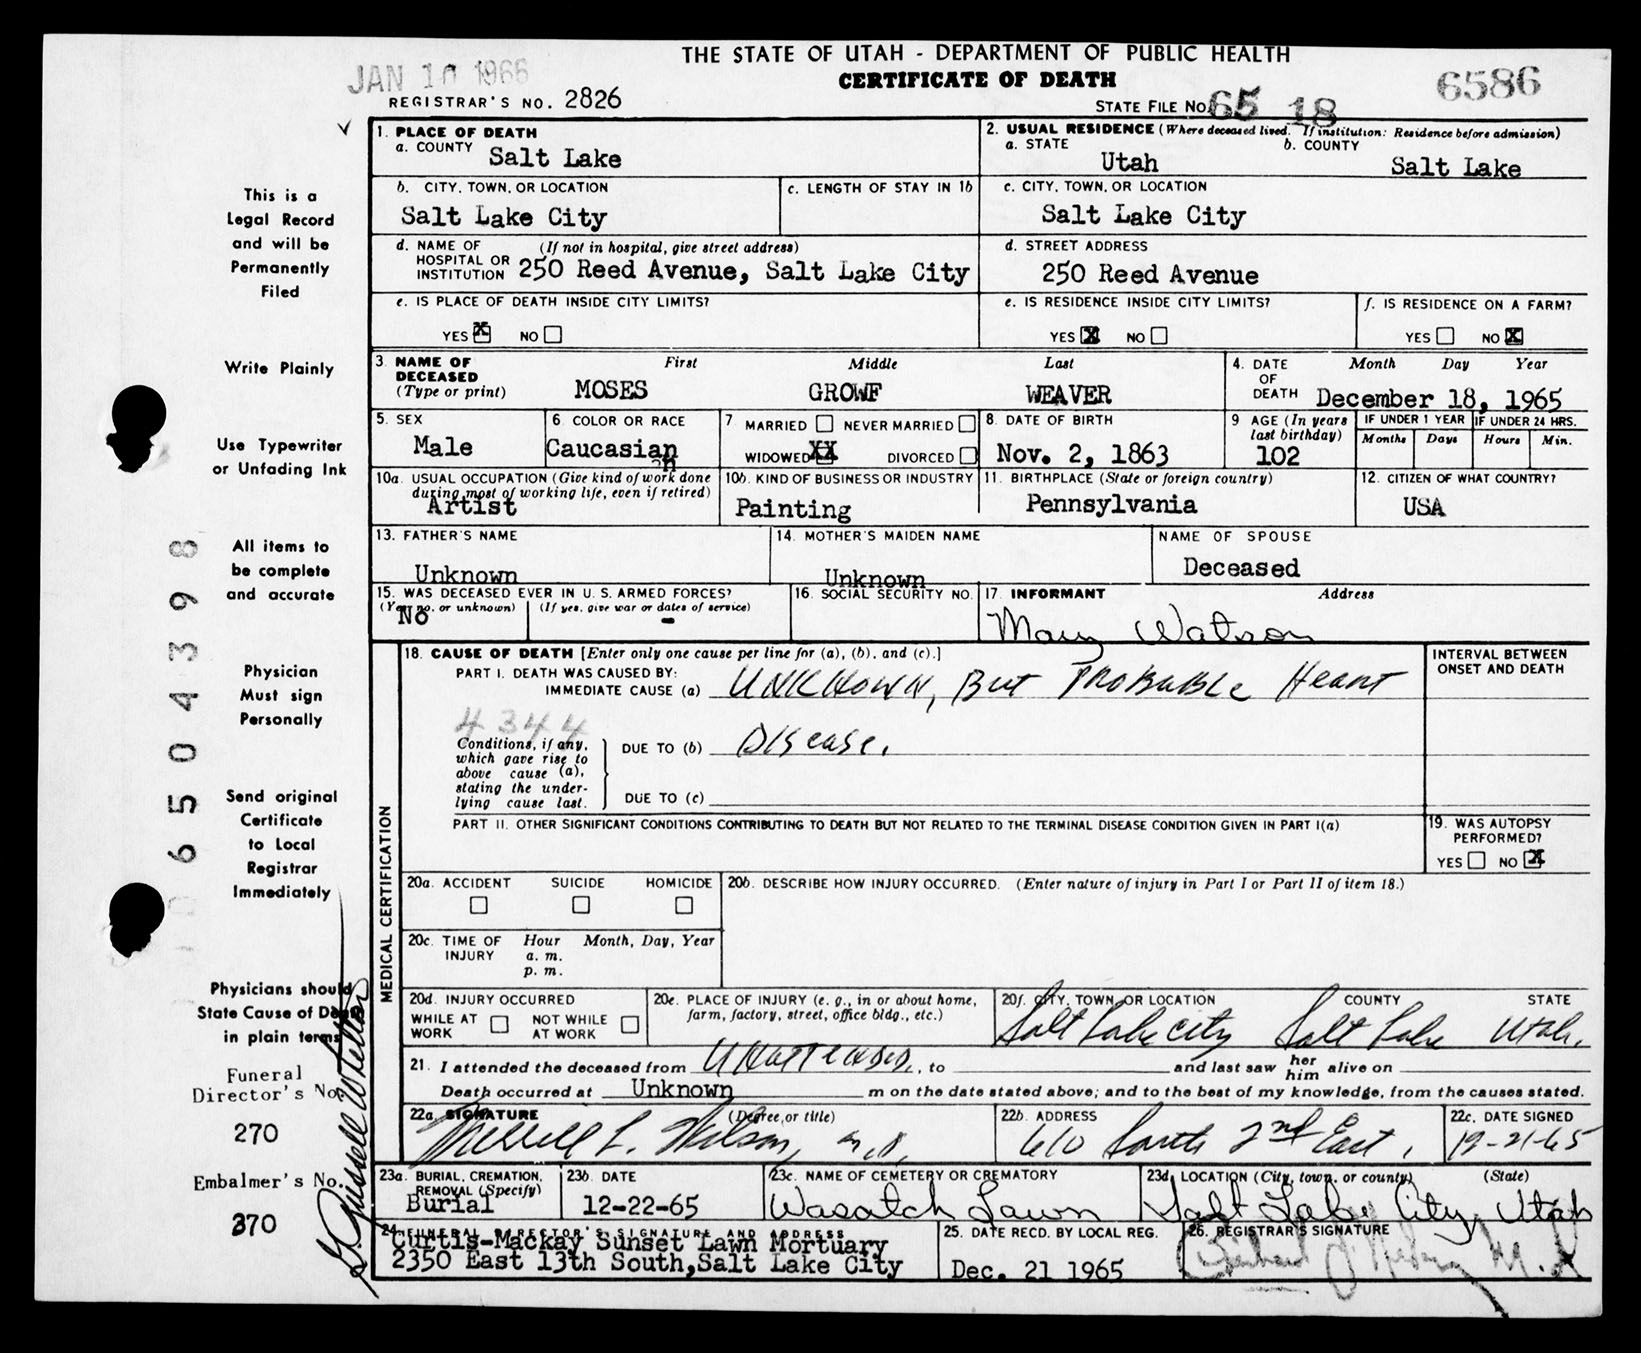 THE STATE OF UTAH - DEPARTMENT OF PUBLIC HEALTH
CERTIFICATE OF DEATH
JAN 10 1966
6586
REGISTRAR'S NO. 2826
STATE FILE NO. 65 18
This is a
Legal Record
and will be
Permanently
Filed
Write Plainly
Use Typewriter
or Unfading Ink
All items to
be complete
and accurate
Physician
Must sign
Personally
Send original
Certificate
to Local
Registrar
Immediately
Physicians should
State Cause of Death
in plain terms
Funeral
Director's No.
270
Embalmer's No.
370
06504398
1. PLACE OF DEATH
a. COUNTY Salt Lake
2. USUAL RESIDENCE (Where deceased lived. If institution: Residence before admission)
a. STATE Utah b. COUNTY Salt Lake
b. CITY, TOWN, OR LOCATION Salt Lake City
c. LENGTH OF STAY IN 1b
c. CITY, TOWN, OR LOCATION Salt Lake City
d. NAME OF HOSPITAL OR INSTITUTION (If not in hospital, give street address) 250 Reed Avenue, Salt Lake City
d. STREET ADDRESS 250 Reed Avenue
e. IS PLACE OF DEATH INSIDE CITY LIMITS?
YES X NO
e. IS RESIDENCE INSIDE CITY LIMITS?
YES X NO
f. IS RESIDENCE ON A FARM?
YES NO X
3. NAME OF DECEASED (Type or print)
First Middle Last
MOSES GROWF WEAVER
4. DATE OF DEATH Month Day Year
December 18, 1965
5. SEX Male
6. COLOR OR RACE Caucasian
7 MARRIED NEVER MARRIED
WIDOWED XX DIVORCED
8. DATE OF BIRTH Nov. 2, 1863
9 AGE (In years last birthday) 102
IF UNDER 1 YEAR Months Days
IF UNDER 24 HRS. Hours Min.
10a. USUAL OCCUPATION (Give kind of work done during most of working life, even if retired)
Artist
10b. KIND OF BUSINESS OR INDUSTRY
Painting
11. BIRTHPLACE (State or foreign country)
Pennsylvania
12. CITIZEN OF WHAT COUNTRY?
USA
13. FATHER'S NAME
Unknown
14. MOTHER'S MAIDEN NAME
Unknown
NAME OF SPOUSE
Deceased
15. WAS DECEASED EVER IN U.S. ARMED FORCES?
(Yes, no, or unknown) (If yes, give war or dates of service)
No -
16. SOCIAL SECURITY NO.
17. INFORMANT Address
Mary Watson
MEDICAL CERTIFICATION
18. CAUSE OF DEATH [Enter only one cause per line for (a), (b), and (c).]
INTERVAL BETWEEN ONSET AND DEATH
PART I. DEATH WAS CAUSED BY:
IMMEDIATE CAUSE (a) Unknown, But Probable Heart
4344
Conditions, if any, which gave rise to above cause (a), stating the underlying cause last.
DUE TO (b) Disease.
DUE TO (c)
PART II. OTHER SIGNIFICANT CONDITIONS CONTRIBUTING TO DEATH BUT NOT RELATED TO THE TERMINAL DISEASE CONDITION GIVEN IN PART I(a)
19. WAS AUTOPSY PERFORMED?
YES NO X
20a. ACCIDENT SUICIDE HOMICIDE
20b. DESCRIBE HOW INJURY OCCURRED. (Enter nature of injury in Part I or Part II of item 18.)
20c. TIME OF INJURY Hour Month, Day, Year
a. m.
p. m.
20d. INJURY OCCURRED
WHILE AT WORK NOT WHILE AT WORK
20e. PLACE OF INJURY (e. g., in or about home, farm, factory, street, office bldg., etc.)
20f. CITY, TOWN, OR LOCATION COUNTY STATE
Salt Lake City Salt Lake Utah.
21. I attended the deceased from Unattended, to and last saw her him alive on
Death occurred at Unknown m on the date stated above; and to the best of my knowledge, from the causes stated.
22a. SIGNATURE (Degree, or title)
Merrell L. Wilson, M.D.
22b. ADDRESS
610 South 2nd East,
22c. DATE SIGNED
12-21-65
23a. BURIAL, CREMATION, REMOVAL (Specify)
Burial
23b. DATE
12-22-65
23c. NAME OF CEMETERY OR CREMATORY
Wasatch Lawn
23d. LOCATION (City, town, or county) (State)
Salt Lake City, Utah
24. FUNERAL DIRECTOR'S SIGNATURE AND ADDRESS
Curtis-Mackay Sunset Lawn Mortuary
2350 East 13th South, Salt Lake City
25. DATE RECD. BY LOCAL REG.
Dec. 21 1965
26. REGISTRAR'S SIGNATURE